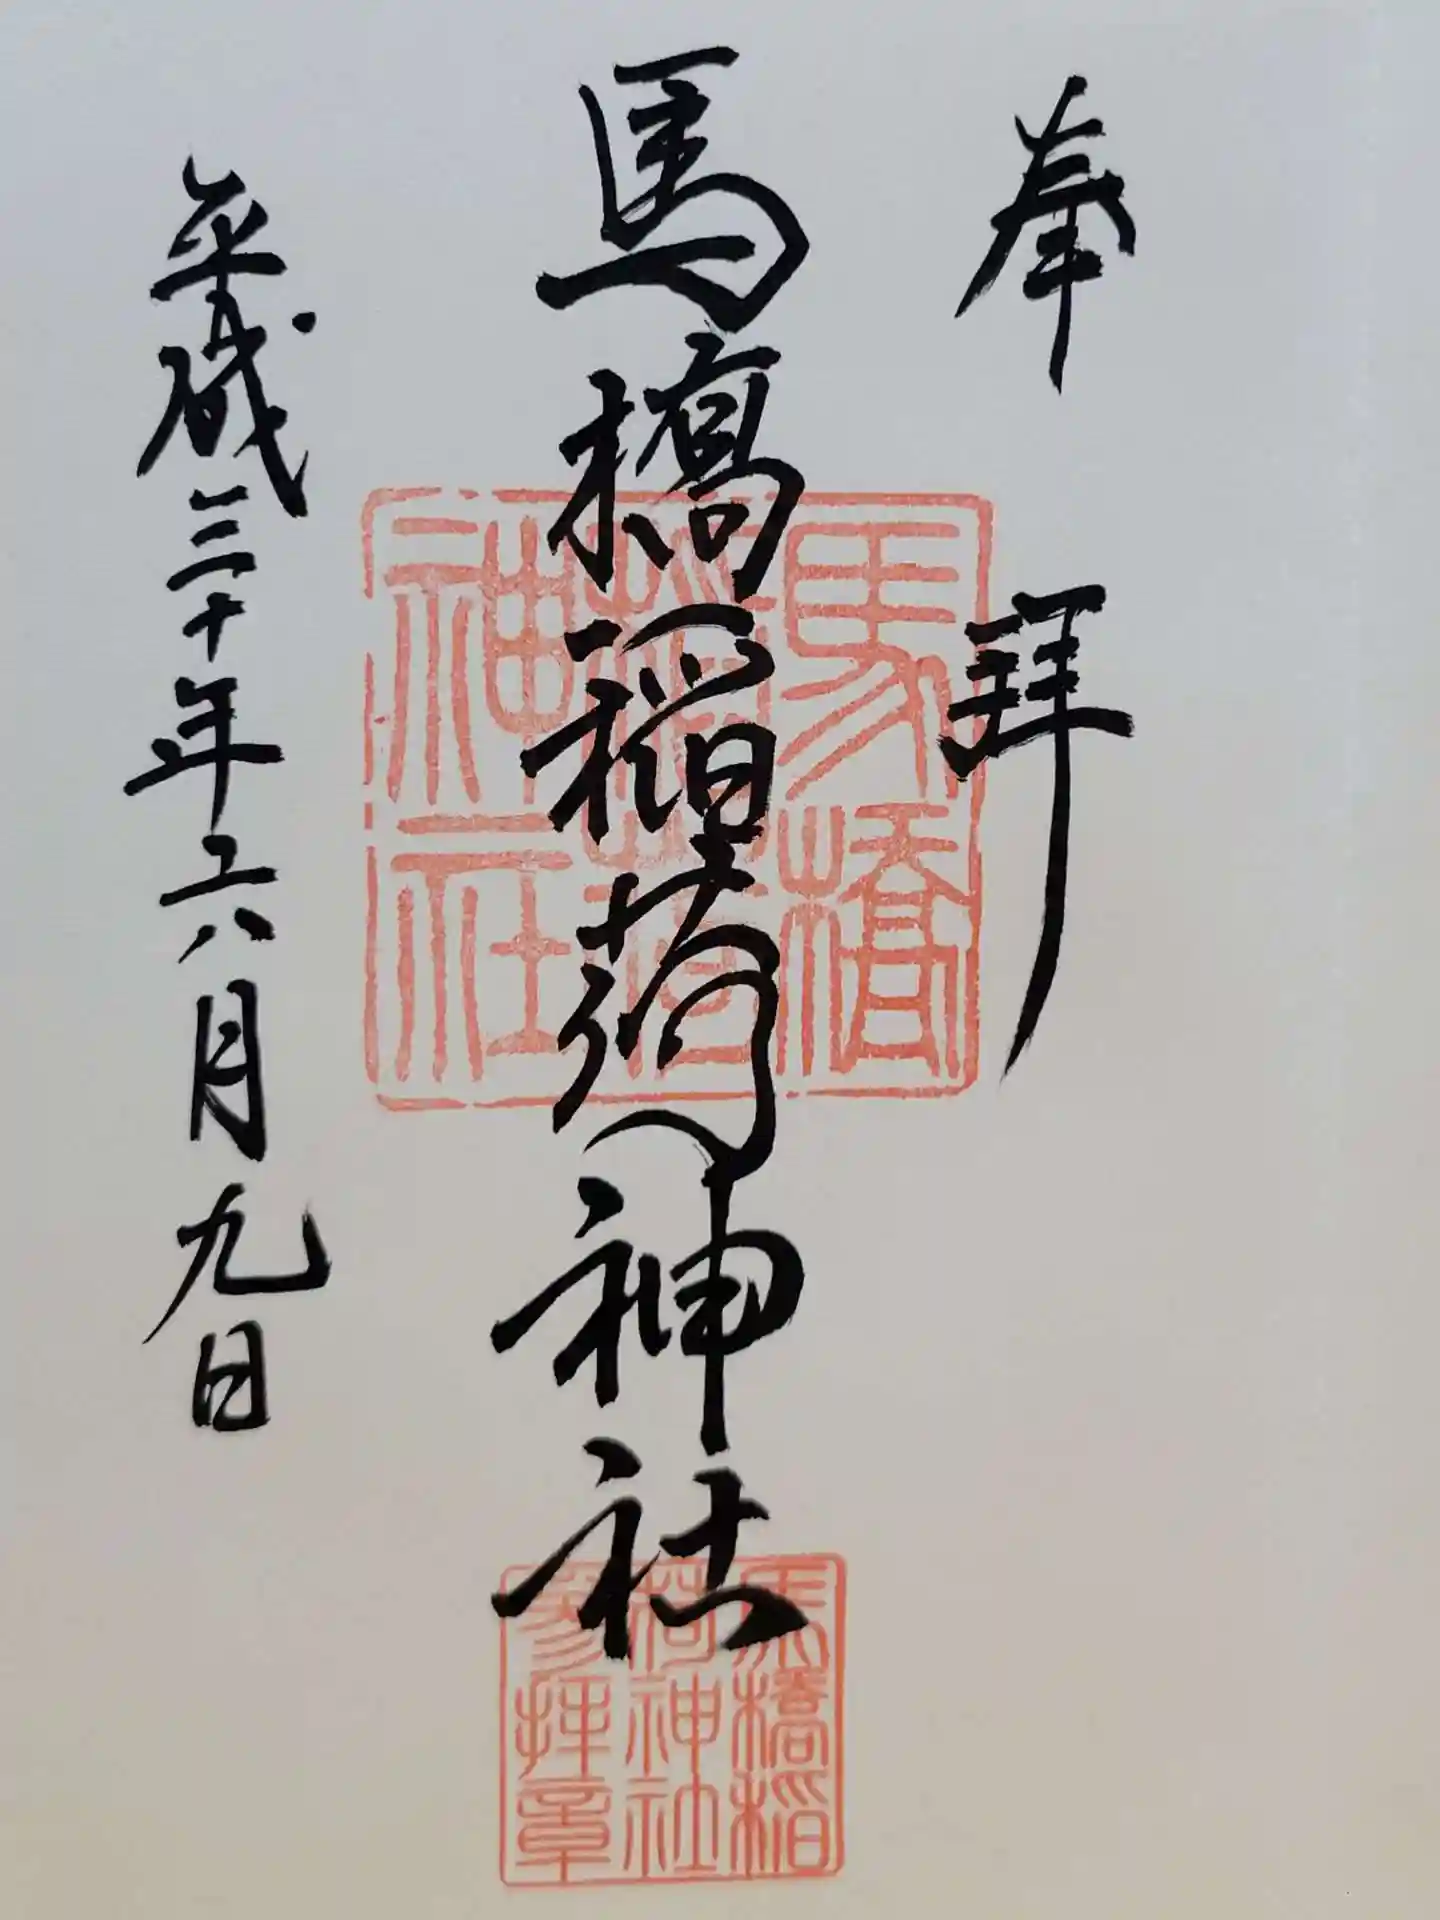 奉拜
馬橋稲荷神社
平成三十年六月九日
馬橋
稲荷
神社
馬橋稲
荷神社
参拝章